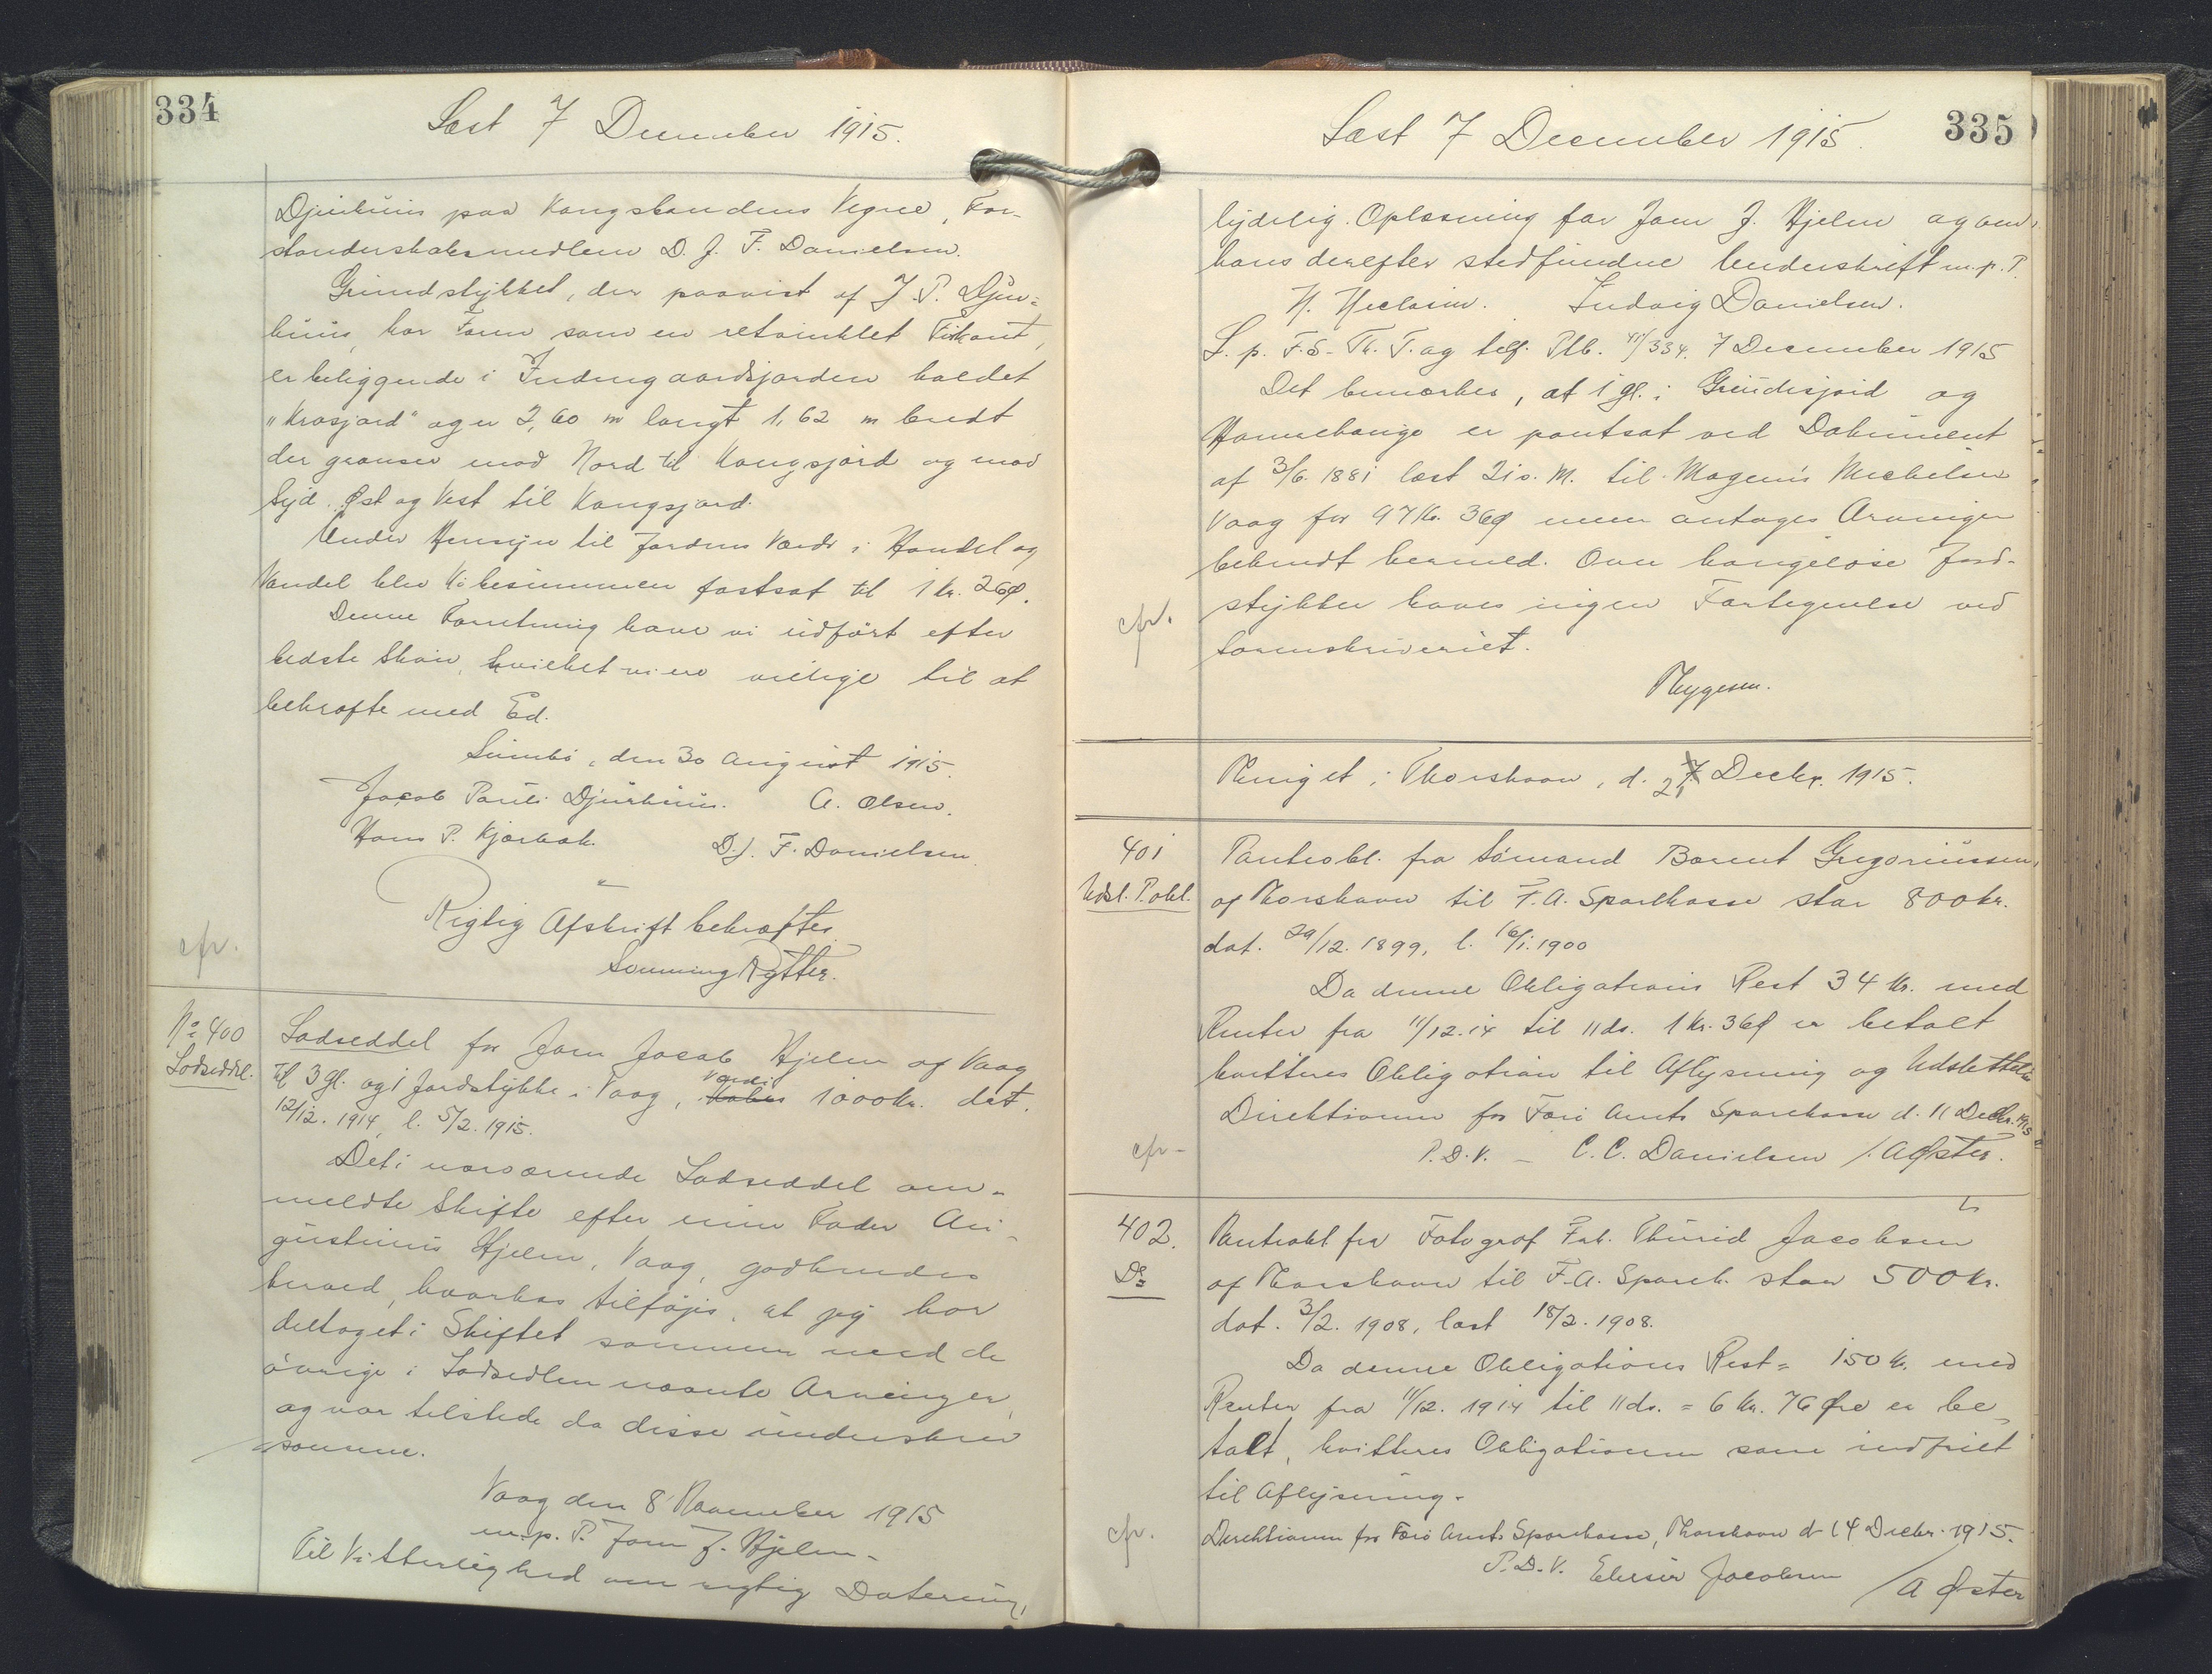 334
Læst 7 December 1915.
Djurhuus paa Kongsbondens Vegne, For-
standerskabsmedlem D. J. F. Danielsen.
Grundstykket, der paavist af J. P. Djur=
huus, har Form som en retvinklet Firkant,
er beliggende i Indengaardsjorden kaldet
"Krosjord" og er 2,60 m langt 1,62 m bredt
der grænser mod Nord til Kongsjord og mod
Syd, Øst og Vest til Kongsjord.
Under Hensyn til Jordens Værdi i Handel og
Vandel blev Købesummen fastsat til 1 Kr. 26 Ø.
Denne Forretning have vi udført efter
bedste Skøn, hvilket vi ere villige til at
bekræfte med Ed.
Sumbø, den 30 August 1915.
Jacob Pauli Djurhuus. A. Olsen.
Hans P. Kjærbæk. D. J. F. Danielsen.
Rigtig Afskrift bekræftes
cfr.
Sonning Rytter.
No 400
Lodseddel.
Lodseddel for Jom Jacob Hjelm af Vaag
til 3 gl. og 1 Jordstykke i Vaag, Værdi 1000 Kr. dat.
12/12. 1914, l. 5/2. 1915.
Det i nærværende Lodseddel om-
meldte Skifte efter min Fader Au-
gustinus Hjelm, Vaag, godkendes
herved, hvorhos tilføjes, at jeg har
deltaget i Skiftet sammen med de
øvrige i Lodsedlen nævnte Arvinger,
og var tilstede da disse underskrev
samme.
Vaag den 8 November 1915
m. p. P. Jom J. Hjelm.
Til Vitterlighed om rigtig Datering,
335
Læst 7 December 1915.
lydelig Oplæsning for Jom J. Hjelm og om
hans derefter stedfundne Underskrift m. p. P.
Ludvig Danielsen.
L. p. F. S. Th. T. og telf. Ptb. 41/334. 7 December 1915
Det bemærkes, at 1 gl. i Grundisjord og
Hamrehauge er pantsat ved Dokument
af 3/6. 1881 læst 21 s. M. til Magnus Michelsen
Vaag for 97 Kr. 36 Ø men antages Arvingen
bekendt hermed. Over haugeløse Jord-
stykker haves ingen Fortegnelse ved
cfr.
Sorenskriveriet.
Thygesen.
Thinget i Thorshavn, d. 21 Decbr. 1915.
401
Udsl. P. obl.
Pantrobl. fra Sømand Barent Gregoriussen,
af Thorshavn til F. A. Sparekasse stor 800 kr.
dat. 29/12. 1899, l. 16/1. 1900
Da denne Obligations Rest 34 Kr. med
Renter fra 11/12. 14 til 11 ds. 1 Kr. 36 Ø er betalt
kvitteres Obligation til Aflysning og Udslettelse
Direktionen for Færø Amts Sparekasse d. 11 Decbr. 1915
cfr
P. D. V. C. C. Danielsen /. A Øster.
402.
Do
Pantrobl fra Fotograf Frk. Thurid Jacobsen
af Thorshavn til F. A. Sparek. stor 500 Kr.
dat. 3/2. 1908, læst 18/2. 1908.
Da denne Obligations Rest = 150 Kr. med
Renter fra 11/12. 1914 til 11 ds. = 6 Kr. 76 Øre er be-
talt, kvitteres Obligationen som indfriet
til Aflysning.
cfr.
Direktionen for Færø Amts Sparekasse, Thorshavn d. 14 Decbr. 1915.
P. D. V. Jacobsen / A Øster